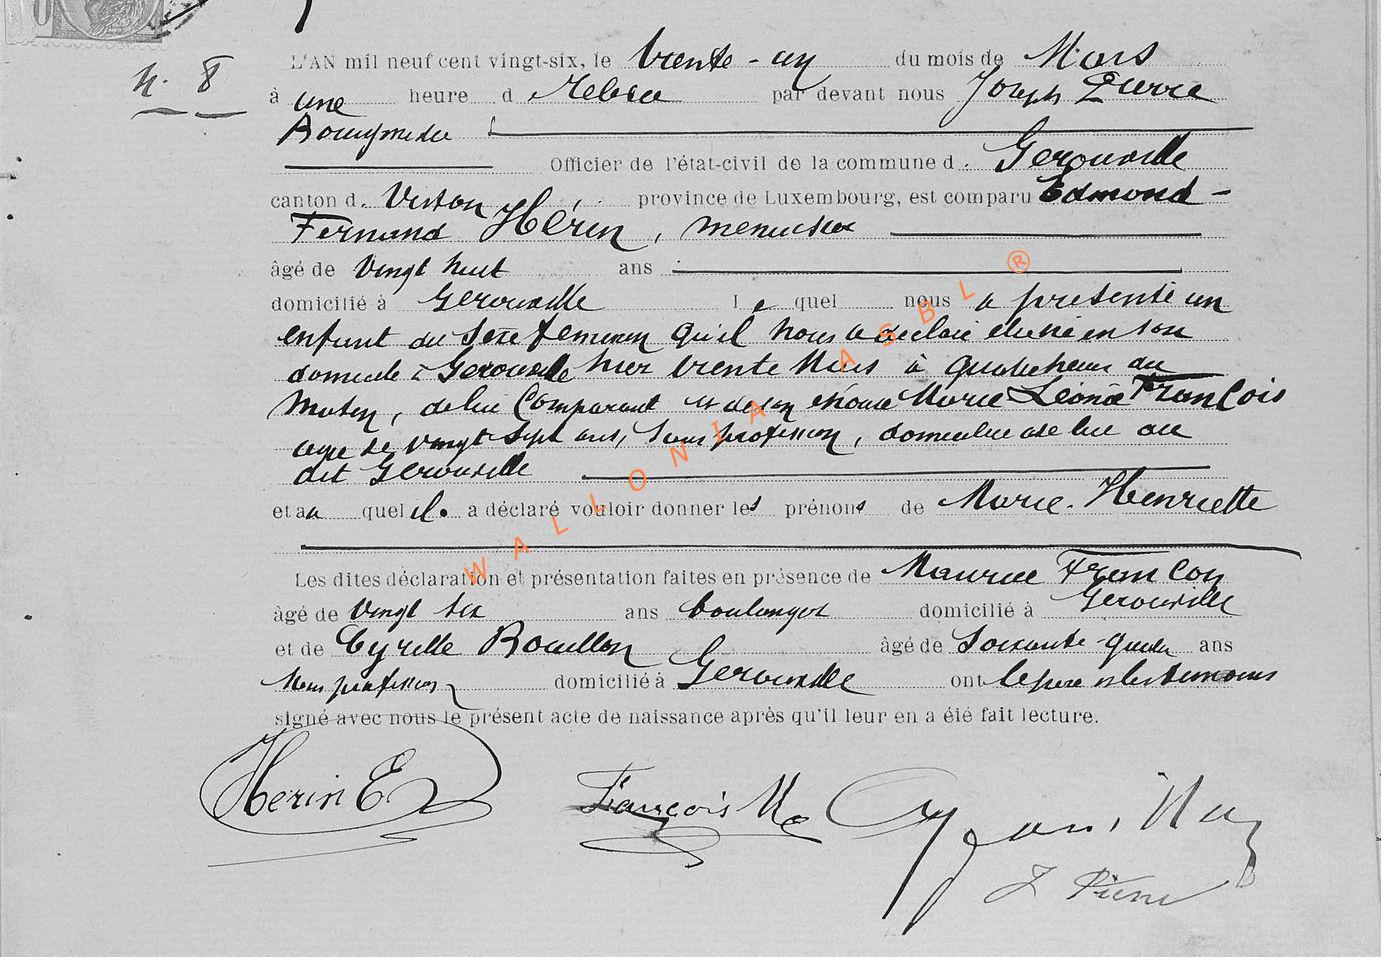 N. 8
L'AN mil neuf cent vingt-six, le trente-un du mois de Mars
à une heure d relevée par devant nous Joseph Pierre
Bourgmestre
Officier de l'état-civil de la commune d. Gérouville
canton d. Virton province de Luxembourg, est comparu Edmond-
Fernand Hérin, menuisier
âgé de vingt huit ans
domicilié à Gérouville le quel nous a présenté un
enfant du sexe féminin qu'il nous a déclaré être né en son
domicile à Gérouville hier trente Mars à quatre heures du
matin, de lui comparant et de son épouse Marie Léonie François
âgée de vingt sept ans, sans profession, domiciliée avec lui au
dit Gérouville
et au quel il a déclaré vouloir donner les prénoms de Marie-Henriette
Les dites déclaration et présentation faites en présence de Maurice François
âgé de vingt six ans boulanger domicilié à Gérouville
et de Cyrille Rouillon âgé de soixante-quatre ans
sans profession domicilié à Gérouville ont le père et les témoins
signé avec nous le présent acte de naissance après qu'il leur en a été fait lecture.
Herin E
François M
J Pierre
WALLONIA ASBL ®